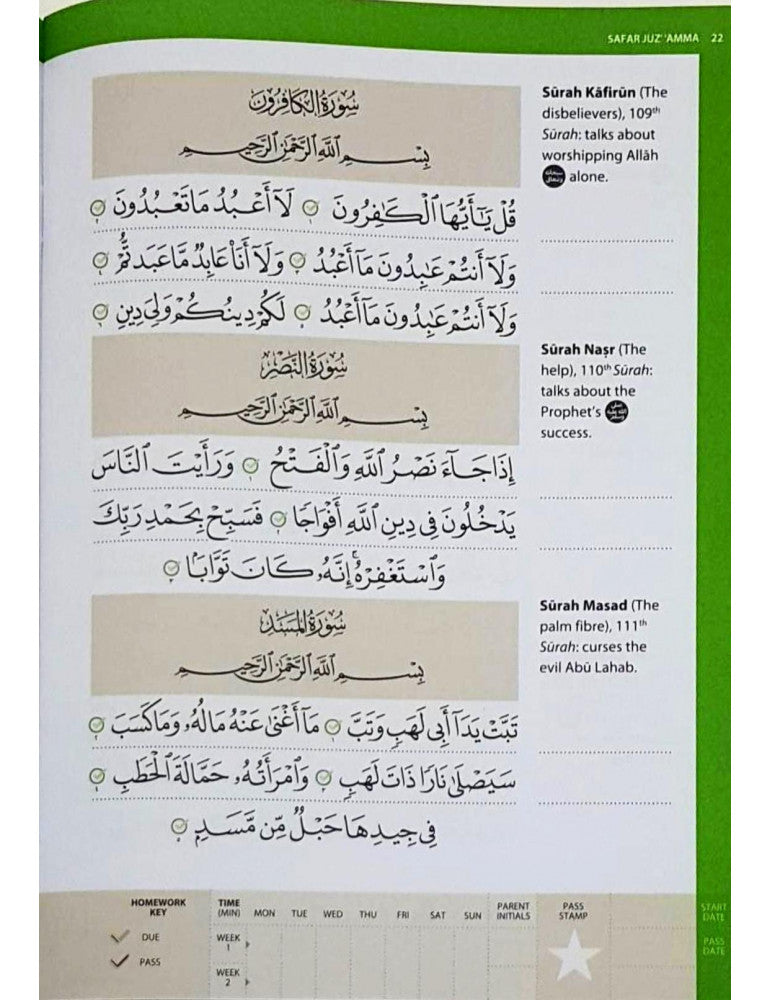 SAFAR JUZ' 'AMMA 22
سُورَةُ الكَافِرُونَ
بِسْمِ ٱللَّهِ ٱلرَّحْمَٰنِ ٱلرَّحِيمِ
قُلْ يَٰٓأَيُّهَا ٱلْكَٰفِرُونَ لَآ أَعْبُدُ مَا تَعْبُدُونَ
وَلَآ أَنتُمْ عَٰبِدُونَ مَآ أَعْبُدُ وَلَآ أَنَا۠ عَابِدٌ مَّا عَبَدتُّمْ
وَلَآ أَنتُمْ عَٰبِدُونَ مَآ أَعْبُدُ لَكُمْ دِينُكُمْ وَلِيَ دِينِ
Sūrah Kāfirūn (The
disbelievers), 109th
Sūrah: talks about
worshipping Allāh
alone.
سُورَةُ النَّصْرِ
بِسْمِ ٱللَّهِ ٱلرَّحْمَٰنِ ٱلرَّحِيمِ
إِذَا جَآءَ نَصْرُ ٱللَّهِ وَٱلْفَتْحُ وَرَأَيْتَ ٱلنَّاسَ
يَدْخُلُونَ فِى دِينِ ٱللَّهِ أَفْوَاجًا فَسَبِّحْ بِحَمْدِ رَبِّكَ
وَٱسْتَغْفِرْهُ ۚ إِنَّهُۥ كَانَ تَوَّابًۢا
Sūrah Naṣr (The
help), 110th Sūrah:
talks about the
Prophet's
success.
سُورَةُ المَسَدِ
بِسْمِ ٱللَّهِ ٱلرَّحْمَٰنِ ٱلرَّحِيمِ
تَبَّتْ يَدَآ أَبِى لَهَبٍ وَتَبَّ مَآ أَغْنَىٰ عَنْهُ مَالُهُۥ وَمَا كَسَبَ
سَيَصْلَىٰ نَارًا ذَاتَ لَهَبٍ وَٱمْرَأَتُهُۥ حَمَّالَةَ ٱلْحَطَبِ
فِى جِيدِهَا حَبْلٌ مِّن مَّسَدٍۭ
Sūrah Masad (The
palm fibre), 111th
Sūrah: curses the
evil Abū Lahab.
HOMEWORK KEY
DUE
PASS
TIME (MIN) MON TUE WED THU FRI SAT SUN PARENT INITIALS PASS STAMP
WEEK 1
WEEK 2
START DATE
PASS DATE